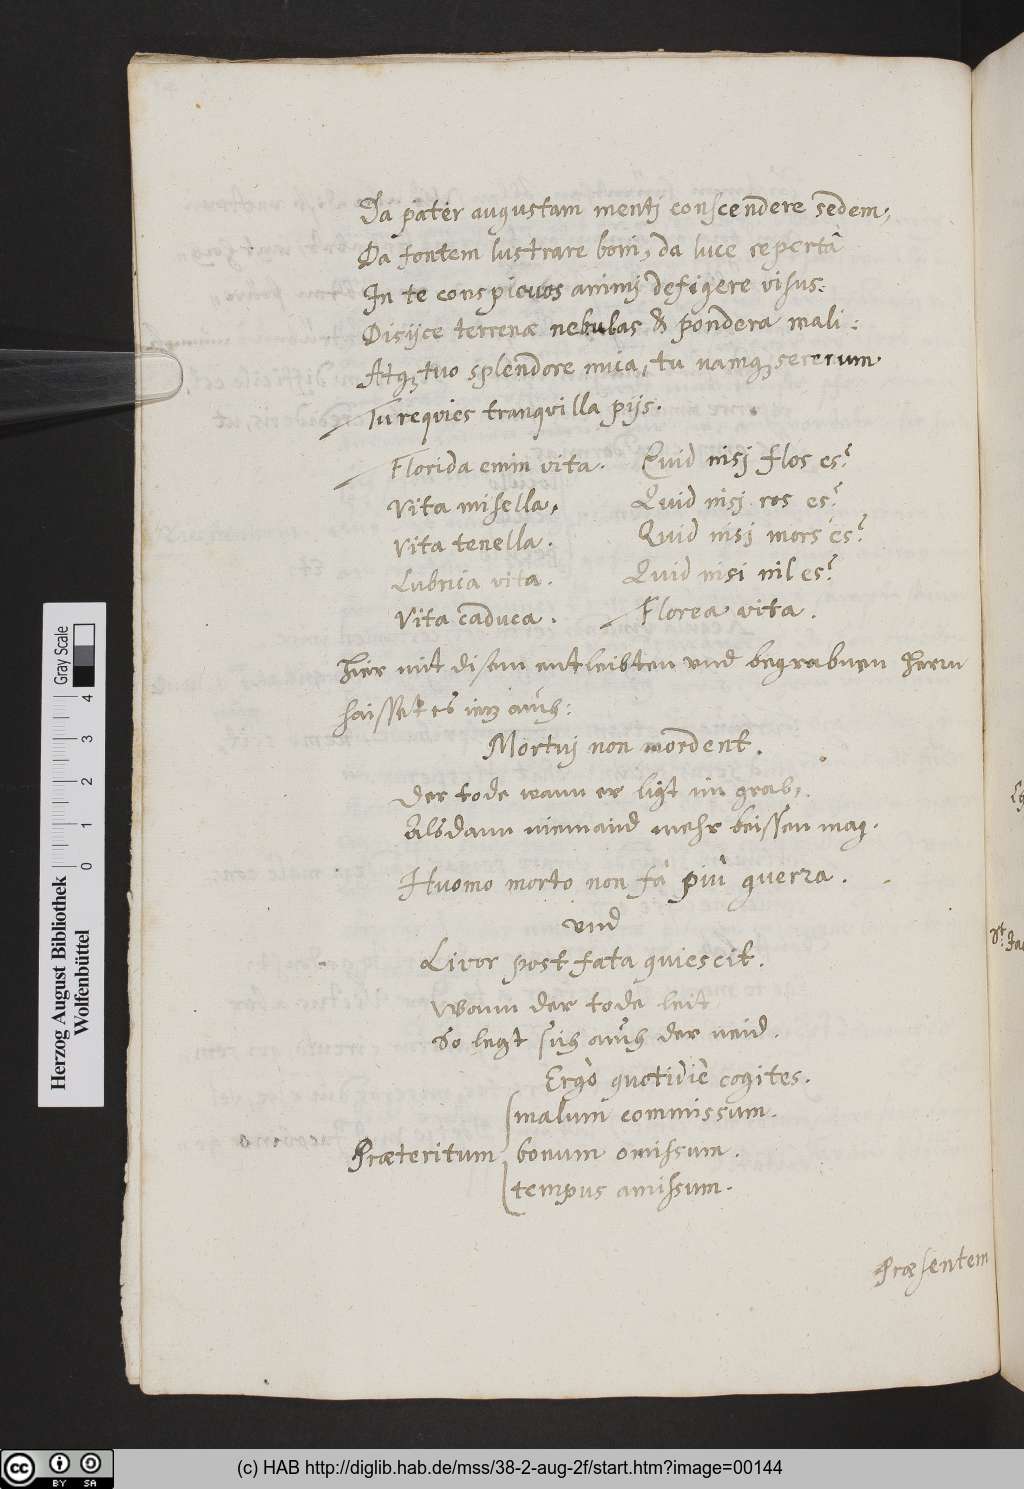 Da pater augustam mentj conscendere sedem,
Da fontem lustrare boni, da luce repertâ
In te conspicuos animj defigere visus:
Disijce terrenæ nebulas & pondera mali:
Atq₃ tuo splendore mica, tu namq₃ sererum
Tu requies tranquilla pijs.
Florida enim vita. Quid nisj flos es?
Vita misella, Quid nisj ros es?
Vita tenella. Quid nisj mors es?
Lubrica vita. Quid nisi nil es?
Vita caduca. Florea vita.
Hier mit disem entleibten und begrabnen Herrn
haisset es iez auch:
Mortuj non mordent.
Der tode wann er ligt im grab,
Alsdann niemand mehr beissen mag.
Huomo morto non fà più guerra.
und
Livor post fata quiescit.
Wann der tode leit
So legt sich auch der neid.
Ergò quotidiè cogites.
malum commissum.
Præteritum bonum omissum.
tempus amissum.
Præsentem
Herzog August Bibliothek
Wolfenbüttel
0 1 2 3 4
Gray Scale
cc BY SA
(c) HAB http://diglib.hab.de/mss/38-2-aug-2f/start.htm?image=00144